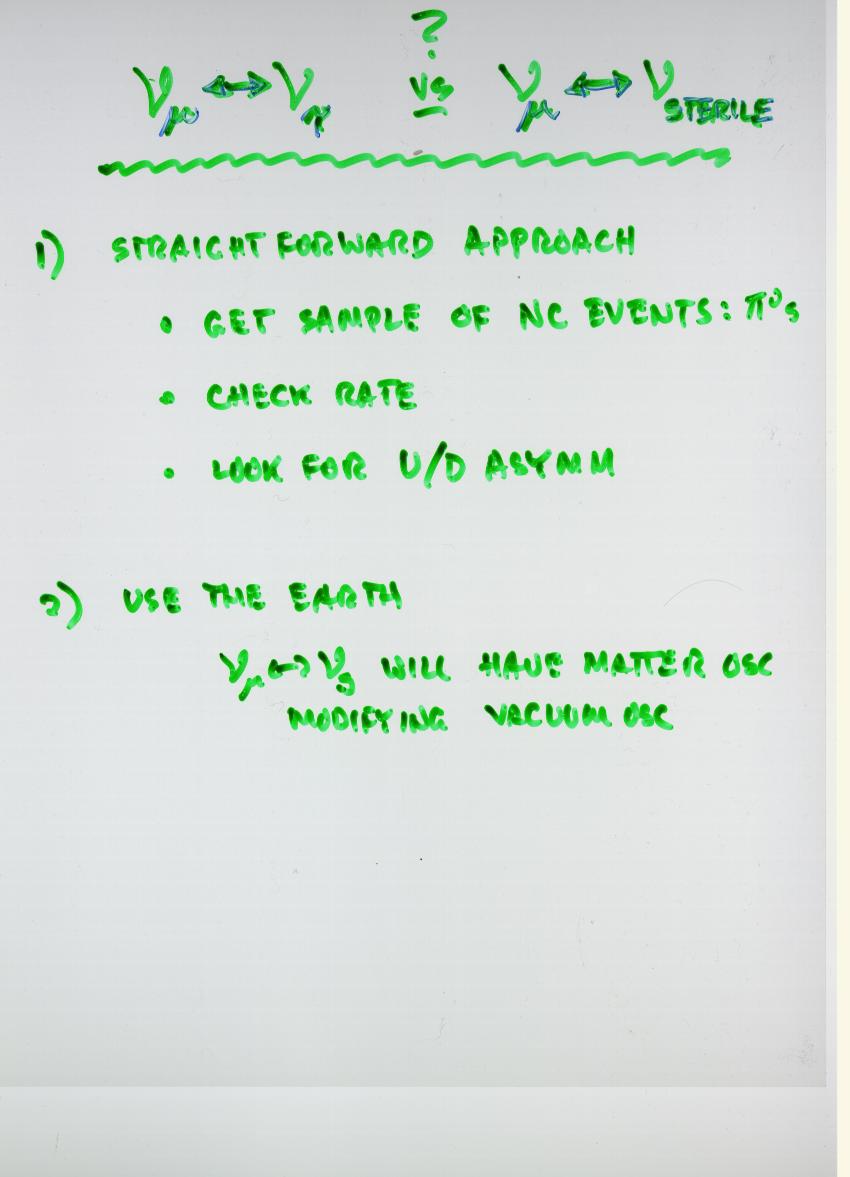 ?
ν_μ ↔ ν_τ vs ν_μ ↔ ν_STERILE
1) STRAIGHT FORWARD APPROACH
• GET SAMPLE OF NC EVENTS: π⁰s
• CHECK RATE
• LOOK FOR U/D ASYMM
2) USE THE EARTH
ν_μ ↔ ν_s WILL HAVE MATTER OSC
MODIFYING VACUUM OSC